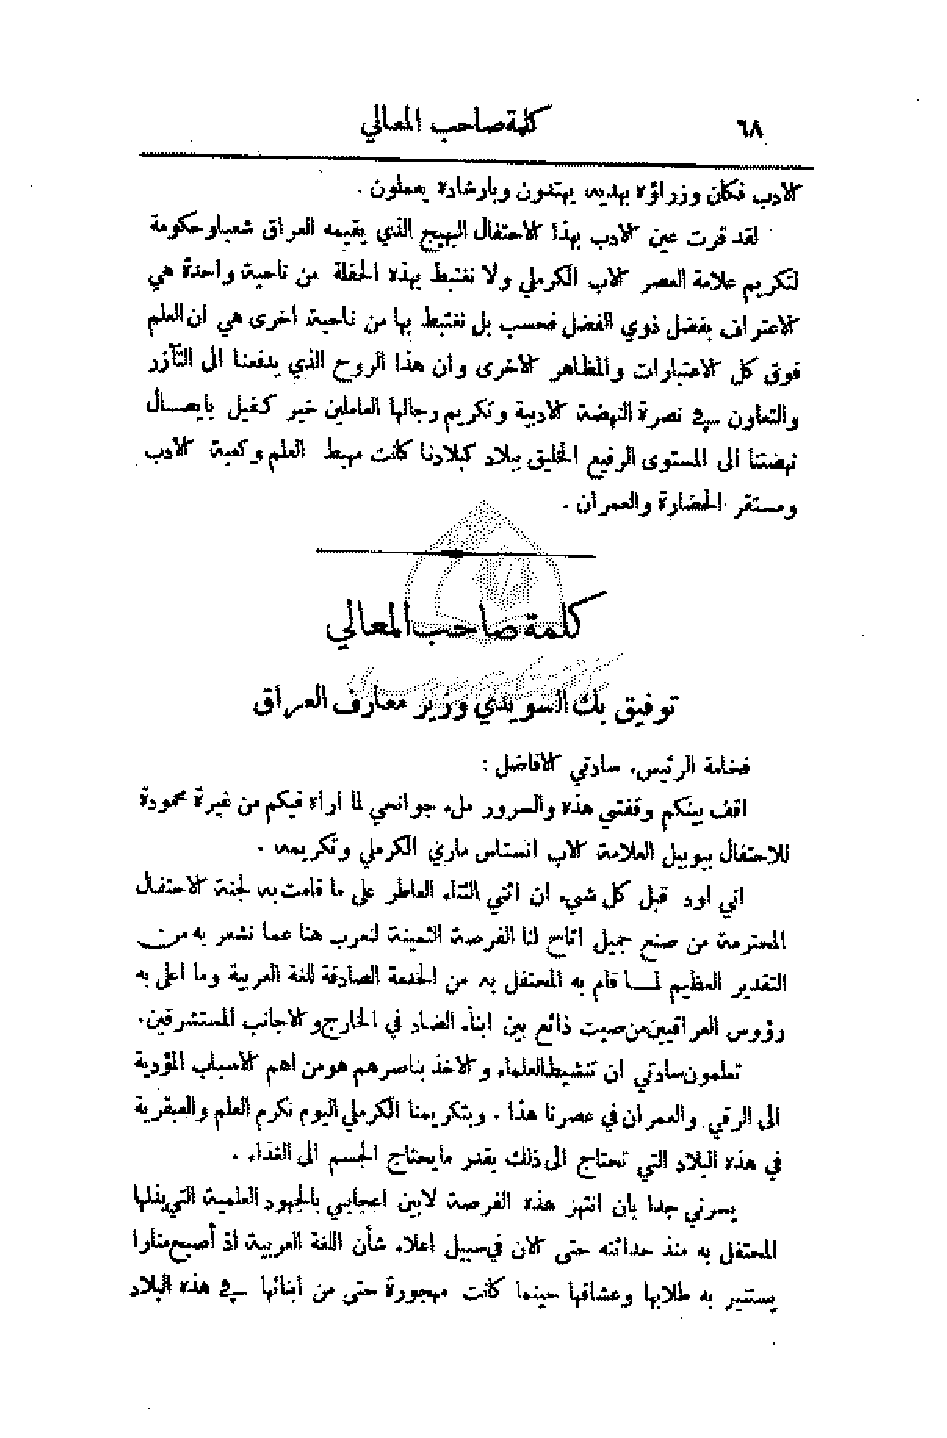 ٦٨
كلمة صاحب المعالي
الادب فكان وزراؤه بهديه يهتدون وبارشاده يعملون .
لقد قرت عين الادب بهذا الاحتفال البهيج الذي يقيمه العراق شعبا وحكومة
لتكريم علامة العصر الاب الكرملي ولا نغتبط بهذه الحفلة من ناحية واحدة هي
الاعتراف بفضل ذوي الفضل فحسب بل نغتبط بها من ناحية اخرى هي ان العلم
فوق كل الاعتبارات والمظاهر الاخرى وان هذا الروح الذي يدفعنا الى التآزر
والتعاون في نصرة النهضة الادبية وتكريم رجالها العاملين خير كفيل بايصال
نهضتنا الى المستوى الرفيع الخليق ببلاد كبلادنا كانت مهبط العلم وكعبة الادب
ومستقر الحضارة والعمران .
كلمة صاحب المعالي
توفيق بك السويدي وزير معارف العراق
فخامة الرئيس، سادتي الافاضل :
اقف بينكم وقفتي هذه والسرور ملء جوانحي لما اراه فيكم من غيرة محمودة
للاحتفال بيوبيل العلامة الاب انستاس ماري الكرملي وتكريمه .
اني اود قبل كل شيء ان اثني الثناء العاطر على ما قامت به لجنة الاحتفال
المحترمة من صنع جميل اتاح لنا الفرصة الثمينة لنعرب هنا عما نشعر به من
التقدير العظيم لما قام به المحتفل به من الخدمة الصادقة للغة العربية وما اعلى به
رؤوس العراقيين من صيت ذائع بين ابناء الضاد في الخارج والاجانب المستشرقين.
تعلمون سادتي ان تنشيط العلماء والاخذ بناصرهم هو من اهم الاسباب المؤدية
الى الرقي والعمران في عصرنا هذا . وبتكريمنا الكرملي اليوم نكرم العلم والعبقرية
في هذه البلاد التي تحتاج الى ذلك بقدر ما يحتاج الجسم الى الغذاء .
يسرني جدا بان انتهز هذه الفرصة لابين اعجابي بالجهود العلمية التي بذلها
المحتفل به منذ حداثته حتى الان في سبيل اعلاء شأن اللغة العربية اذ أصبح منارا
يستنير به طلابها وعشاقها حينما كانت مهجورة حتى من ابنائها في هذه البلاد